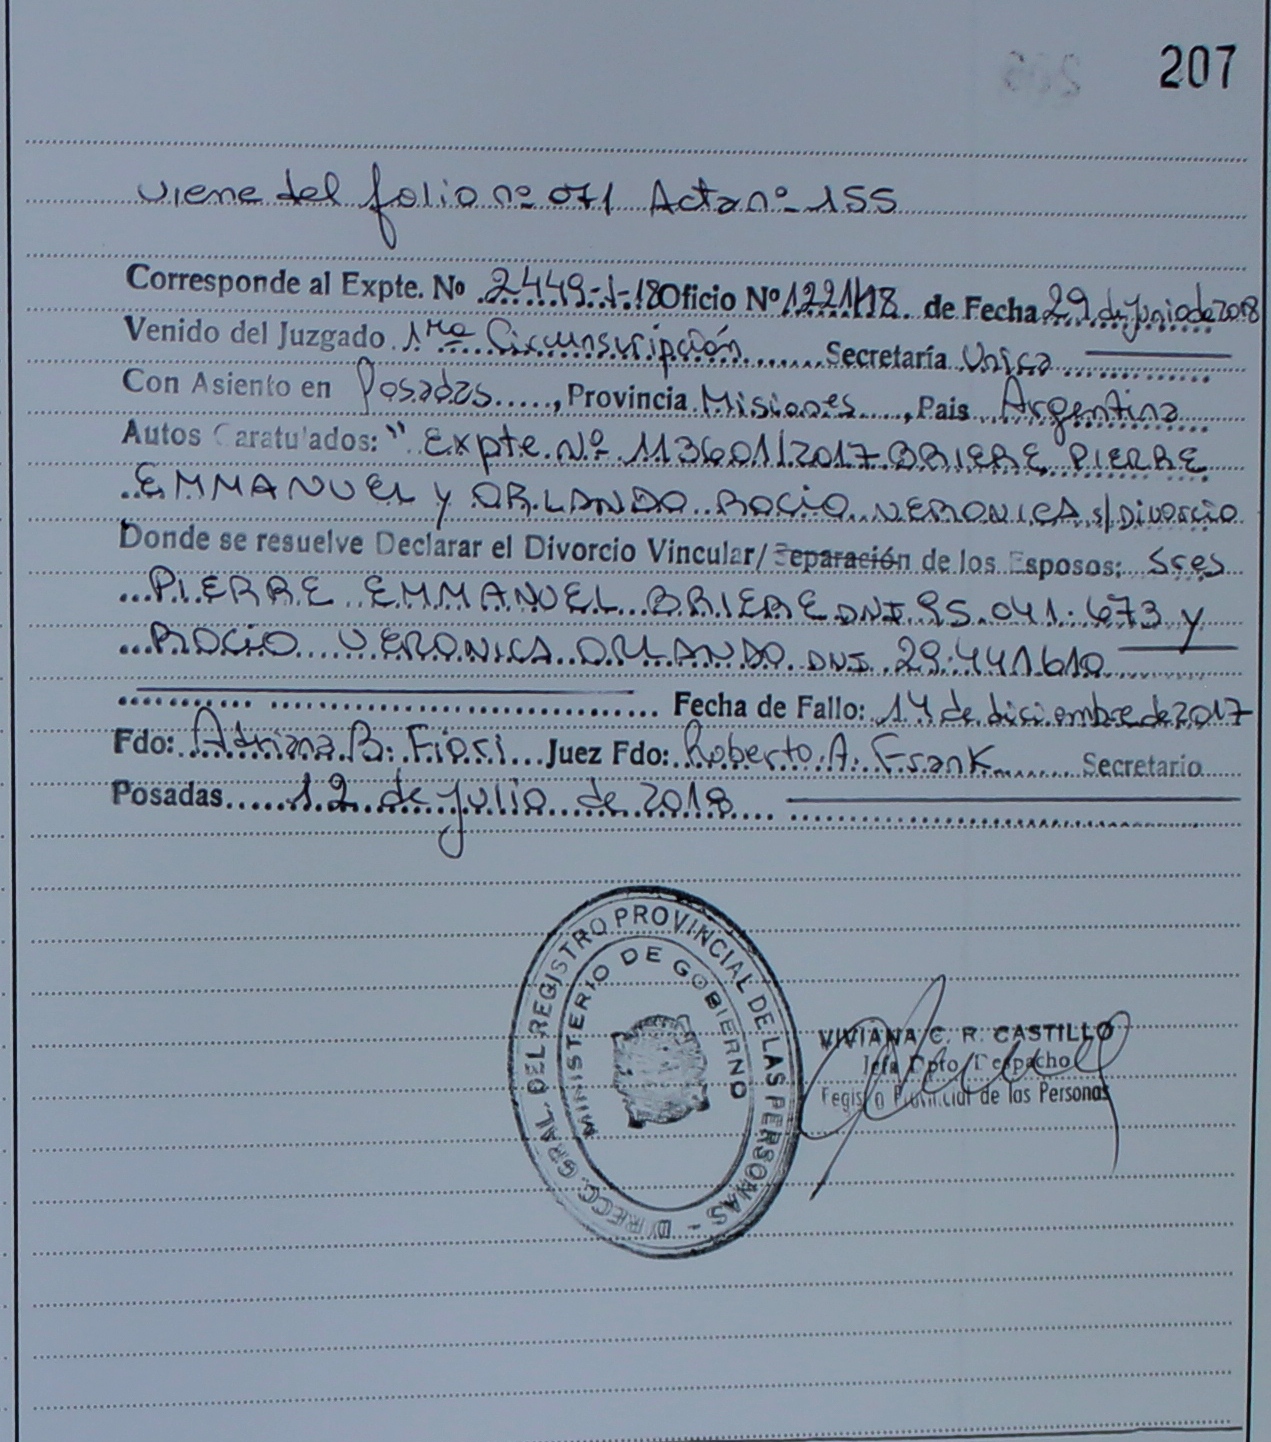 207
Viene del folio nº 071 Acta nº 155
Corresponde al Expte. Nº 2449-I-18 Oficio Nº 1221/18 de Fecha 29 de junio de 2018
Venido del Juzgado 1ra Circunscripción Secretaría Unica
Con Asiento en Posadas, Provincia Misiones, Pais Argentina
Autos Caratulados: " Expte. Nº 113601/2017 BRIERE, PIERRE
EMMANUEL y ORLANDO ROCIO VERONICA s/Divorcio
Donde se resuelve Declarar el Divorcio Vincular/Separación de los Esposos: Sres
PIERRE EMMANUEL BRIERE DNI 95.041.673 y
ROCIO VERONICA ORLANDO DNI 29.441.610
Fecha de Fallo: 14 de diciembre de 2017
Fdo: Adriana B. Fiori Juez Fdo: Roberto A. Frank Secretario
Posadas 12 de julio de 2018
DIRECC. GRAL. DEL REGISTRO PROVINCIAL DE LAS PERSONAS -
MINISTERIO DE GOBIERNO
VIVIANA C. R. CASTILLO
Jefa Dpto Despacho
Registro Provincial de las Personas